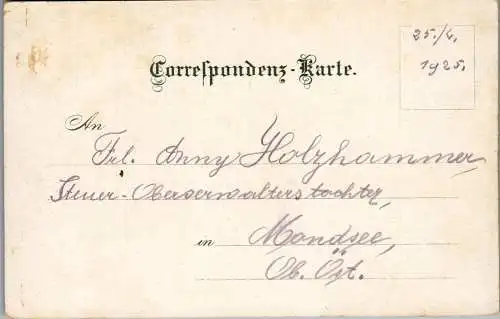 25./4.
1925.
Correspondenz-Karte.
An
Frl. Anny Holzhammer,
Steuer-Oberverwalterstochter,
in Mondsee,
Ob. Öst.